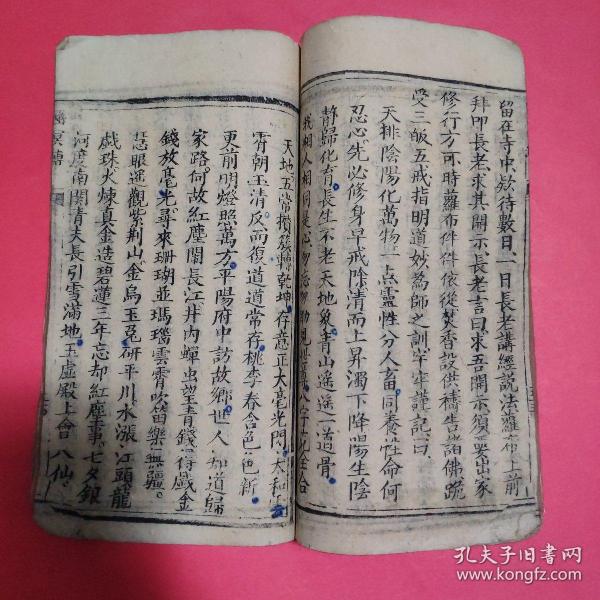 留在寺中欵待數日一日長老講經說法蘿布上前
拜叩長老求其開示長老言曰求吾開示須要出家
修行方可時蘿布件件依從焚香設供禱告諸佛跪
受三皈五戒指明道妙為師之訓字字牢謹記曰
天排陰陽化萬物一点靈性分人畜同養性命何
忍心先必修身早戒除清而上昇濁下降陽生陰
靜歸化育長生不老天地象青山遙遙一道骨
我相人相
天地五常攢簇轉乾坤存意正大毫光門太和
霄朝玉清反而復道道常存桃李春合色色新
更前明燈照萬方平陽府中訪故鄉世人知道歸
家路何故紅塵閙長江井内蟬虫望青錢得戲金
錢放毫光尋來珊瑚並瑪瑙雲霄吹笛樂無疆
慧眼遥觀紫荆山金烏玉兔研平川水漲江頭龍
戯珠火煉真金造碧蓮三年忘却紅塵事七夕銀
河度南関青夫長引雪滿地玉虛殿上會八仙
孔夫子旧書网
www.kongfz.com